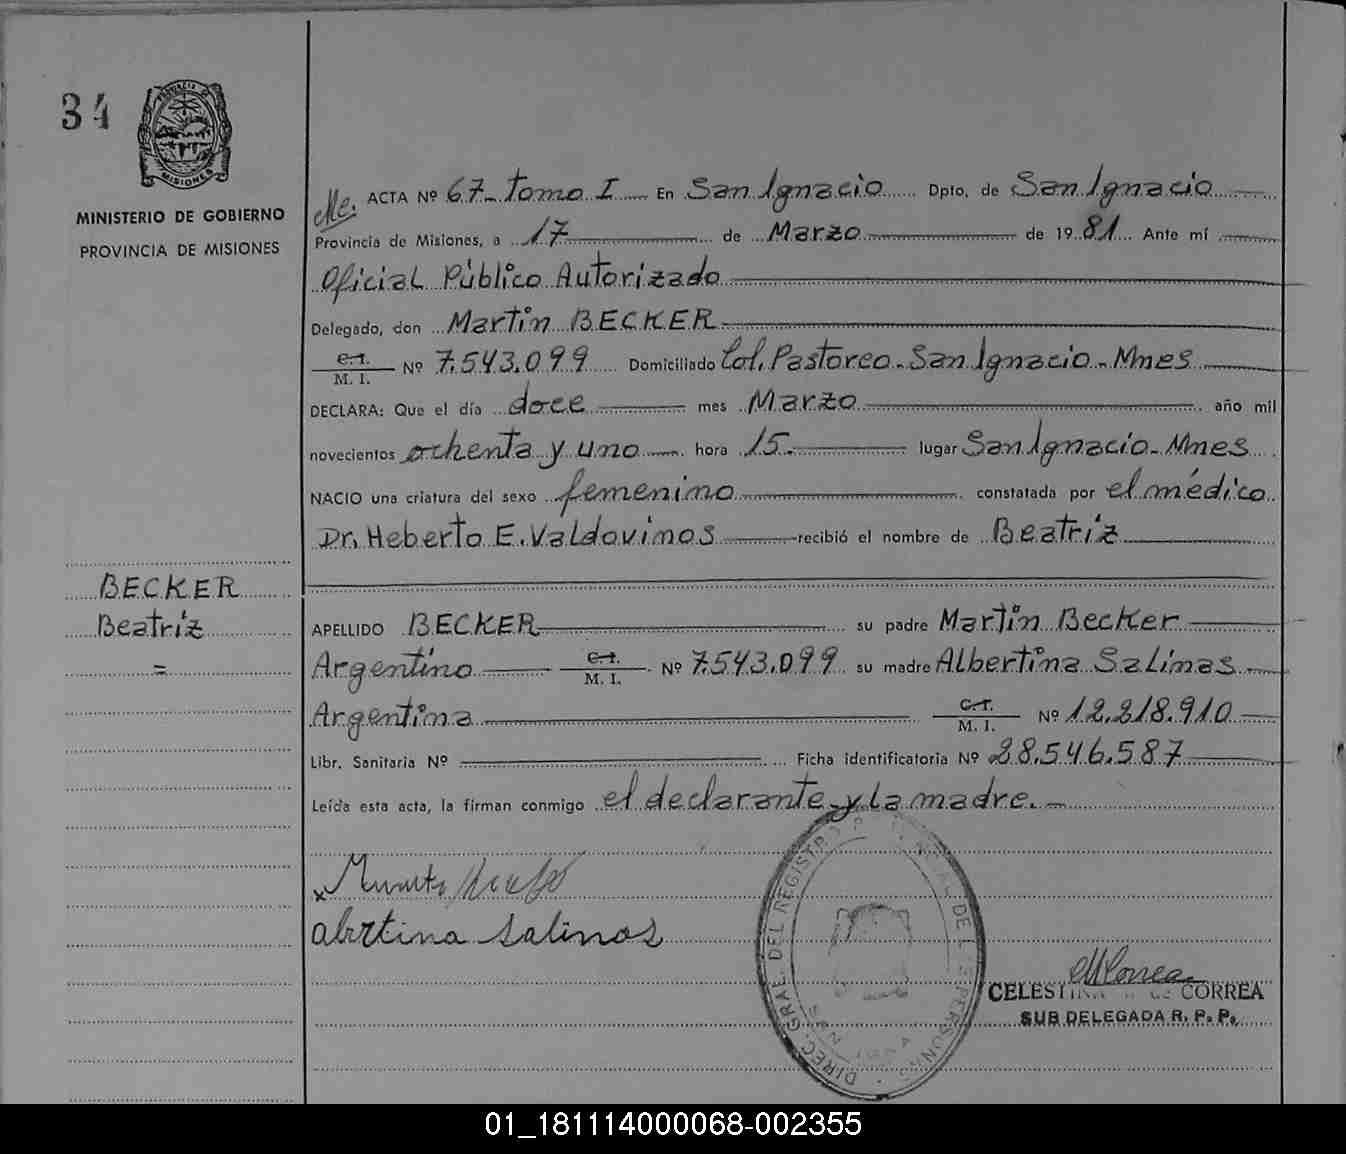 34
PROVINCIA DE
MISIONES
MINISTERIO DE GOBIERNO
PROVINCIA DE MISIONES
BECKER
Beatriz
=
Me. ACTA Nº 67- Tomo I En San Ignacio Dpto. de San Ignacio
Provincia de Misiones, a 17 de Marzo de 1981 Ante mí
Oficial Público Autorizado
Delegado, don Martin BECKER
C.I.
M. I. Nº 7.543.099 Domiciliado Col. Pastoreo - San Ignacio - Mnes
DECLARA: Que el día doce mes Marzo año mil
novecientos ochenta y uno hora 15. lugar San Ignacio - Mnes
NACIO una criatura del sexo femenino constatada por el médico
Dr. Heberto E. Valdovinos recibió el nombre de Beatriz
APELLIDO BECKER su padre Martin Becker
Argentino C.I.
M. I. Nº 7.543.099 su madre Albertina Salinas
Argentina C.I.
M. I. Nº 12.218.910
Libr. Sanitaria Nº Ficha identificatoria Nº 28.546.587
Leída esta acta, la firman conmigo el declarante y la madre.
x
abrtina salinas
DIREC. GRAL. DEL REGISTRO P DE L S PERSONAS
CELESTINA DE CORREA
SUB DELEGADA R. P. P.
01_181114000068-002355